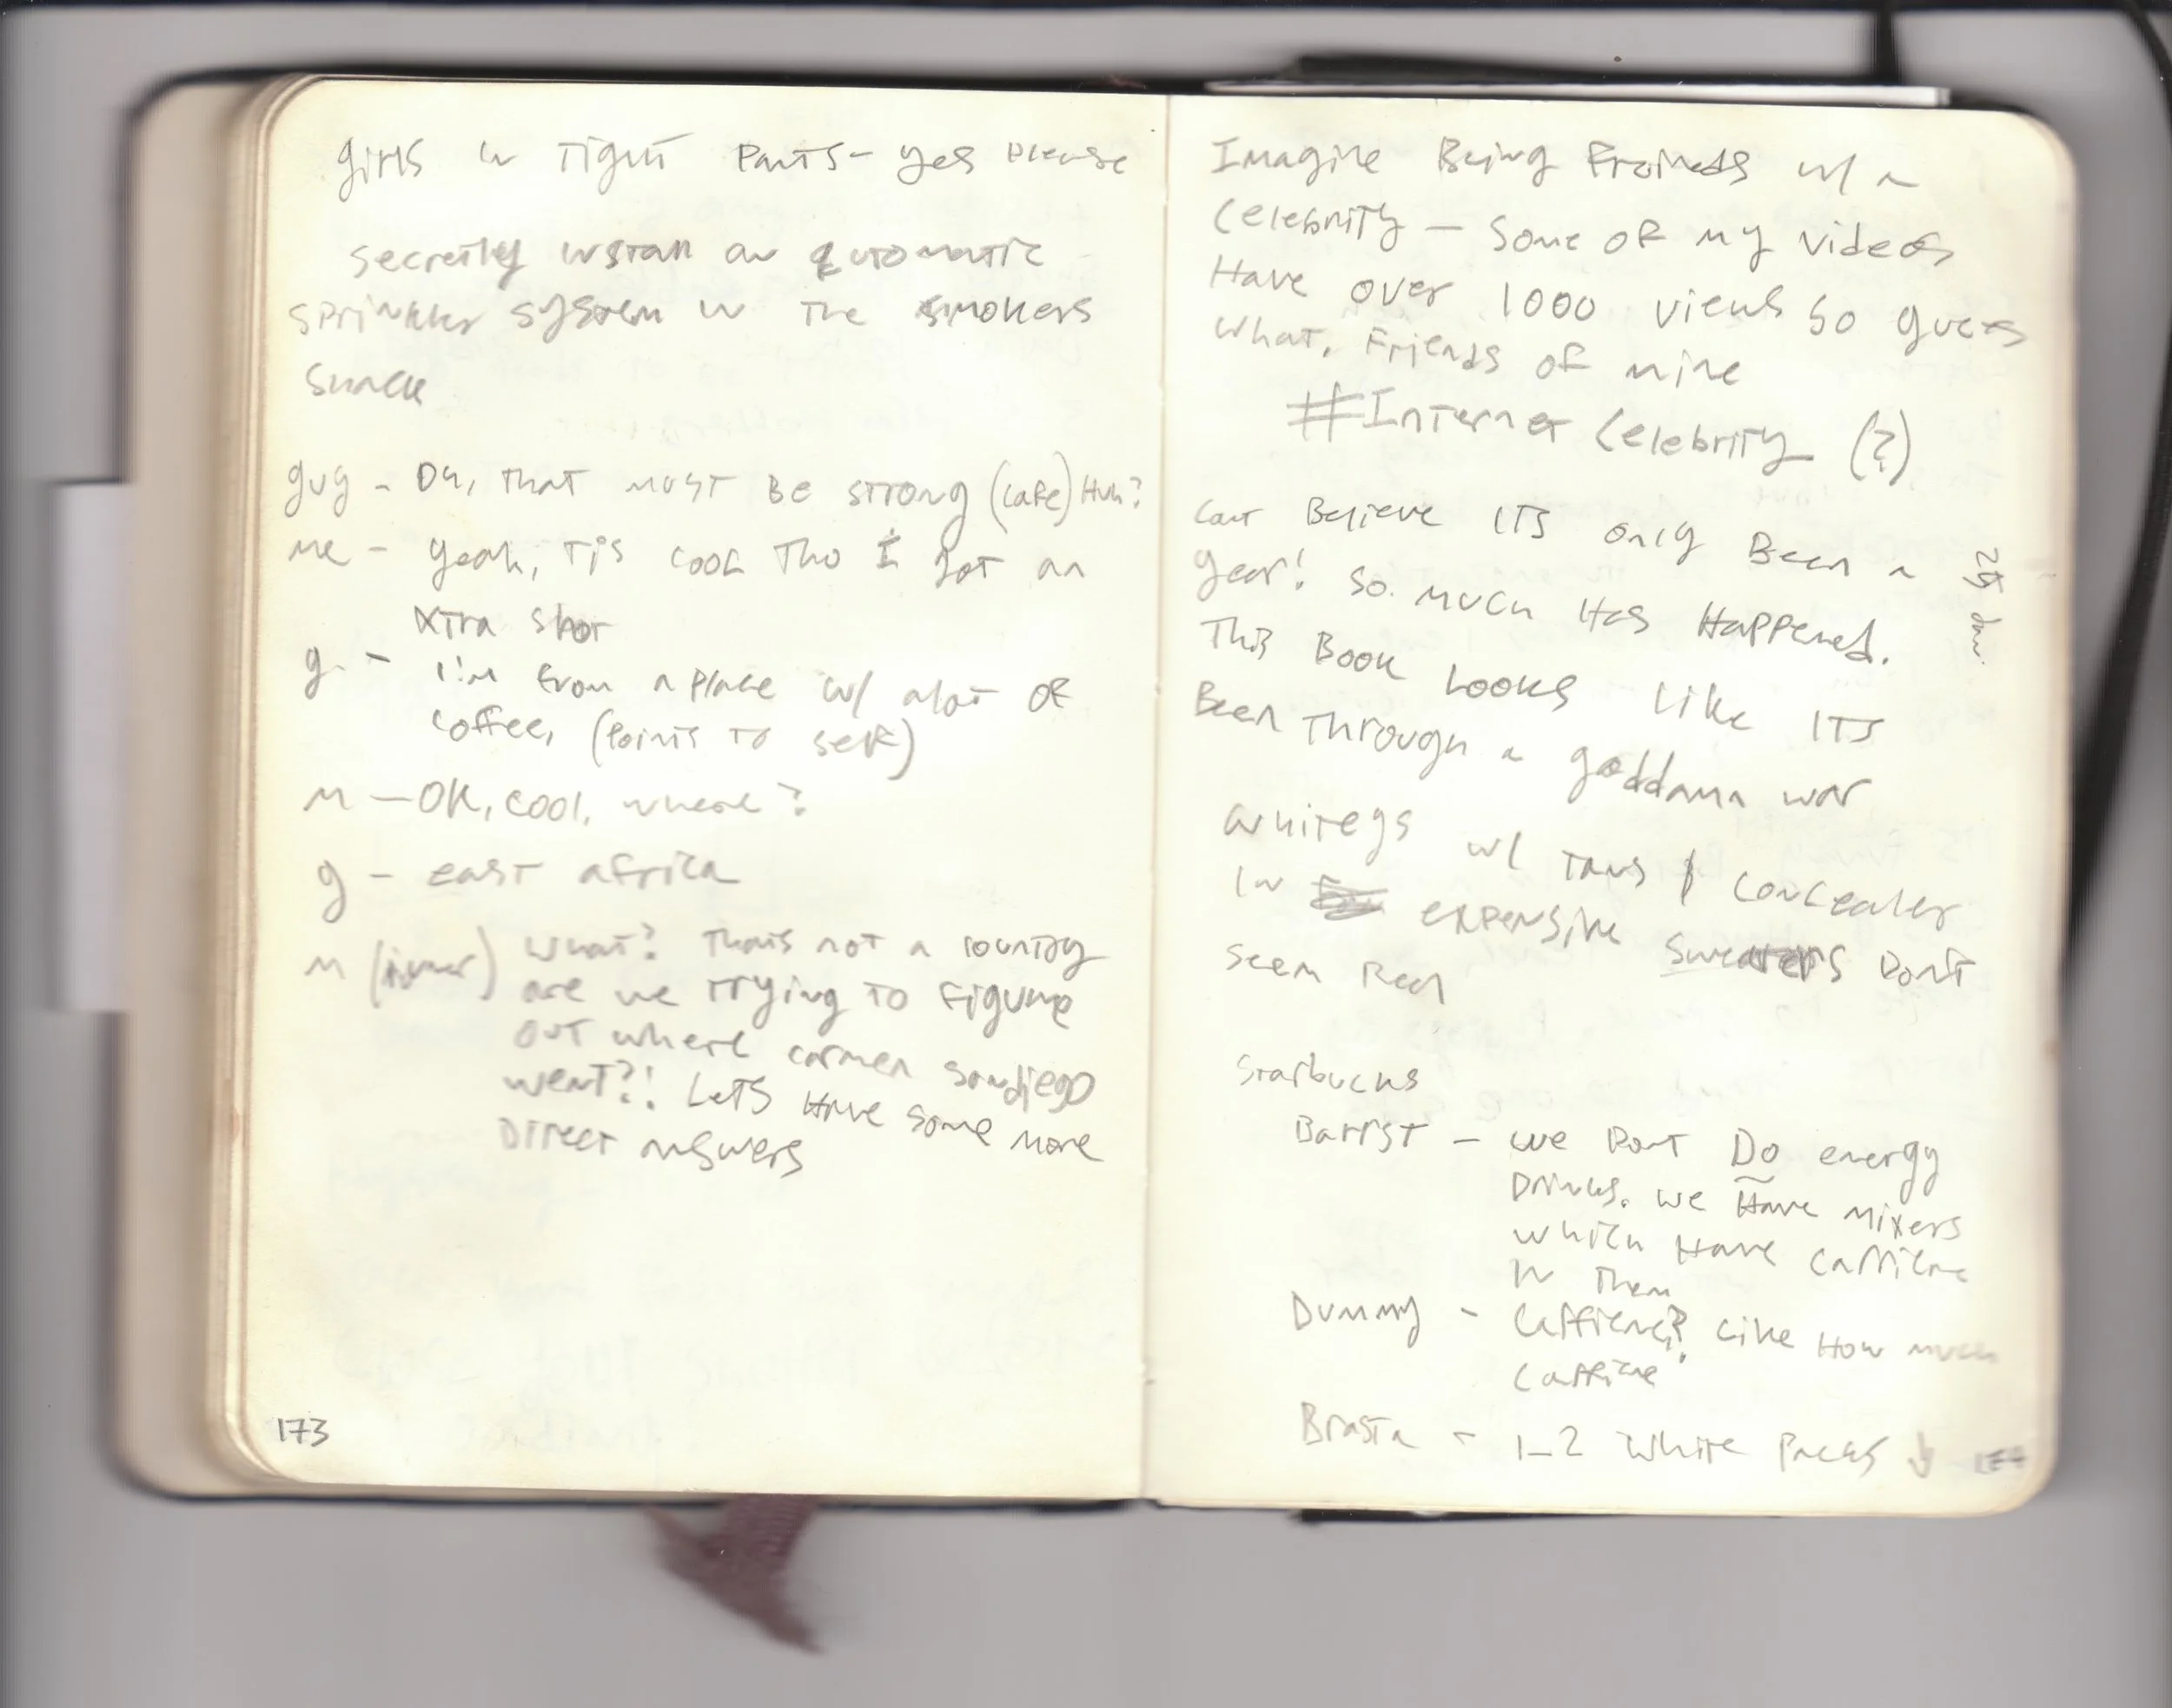 girls in Tight Pants - yes please
secretly install an automatic
sprinkler system in The smokers
shack
guy - Oh, that must be strong (cafe) Huh?
me - yeah, Tis cool Tho I got an
xtra shot
g. - I'm from a place w/ alot of
coffee, (points to self)
m - OK, cool. where?
g - east africa
m (inner) what? Thats not a country
are we trying to figure
out where carmen sandiego
went?! Lets Have some more
Direct answers
173
Imagine Being Freinds w/ a
Celebrity - Some of my videos
Have over 1000 views so guess
what, Friends of mine
#Internet Celebrity (?)
Cant Believe ITS only Been a
year! So much Has Happened.
This Book Looks Like ITS
Been Through a goddamn war
25 Jan.
w/ Tans & Concealer
In expensive sweaters Don't
seem Real
Starbucks
Barrst - we Dont Do energy
Drinks. we Have mixers
which Have caffiene
in Them
Dummy - Caffiene? Like How much
caffine
Brasta - 1-2 white Packs ↓